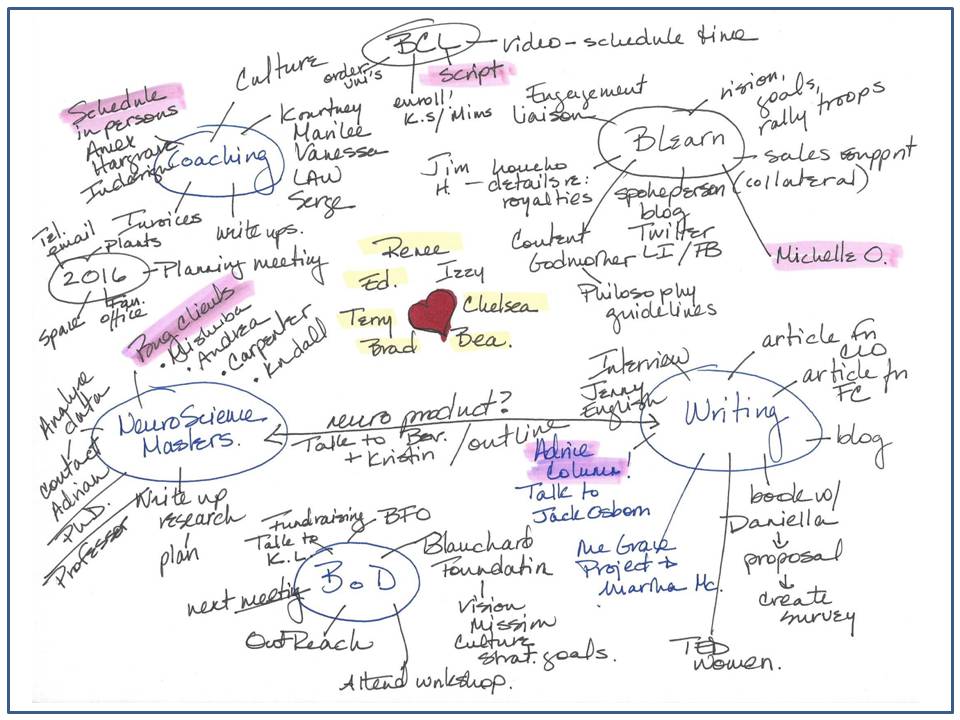 BCL
video - schedule time
Script
enroll!
K.S/Mins
Culture
Schedule
in persons
Amex
Hargrave
Coaching
Kourtney
Marilee
Vanessa
LAW
Serge
Invoices
write ups.
Engagement
liaison
BLearn
vision,
goals,
rally troops
sales support
(collateral)
Michelle O.
Jim
H. - details re:
royalties
spokeperson
blog
Twitter
LI / FB
Content
Godmother
Philosophy
guidelines
Tel.
email
Plants
2016
Planning meeting
Space
Fan.
office
Renee
Ed.
Izzy
Chelsea
Terry
Brad
Bea.
Pong Clients
• Andrea
• Carpenter
• Kndall
NeuroScience
Masters.
Analyze
data
contact
Adrian
PhD.
Professor
Write up
research
plan
neuro product?
Talk to
+ Kristin
/outline
Interview
Jenny
English
Writing
article fn
CLO
article fn
FC
blog
book w/
Daniella
proposal
create
survey
TED
Women.
Advice
Column!
Talk to
Jack Osborn
Project →
Martha Mc.
BoD
Fundraising
Talk to
K.L.
BFO
Blanchard
Foundatin
Vision
Missim
Culture
Strat. goals.
next meeting
OutReach
Attend wnkshop.